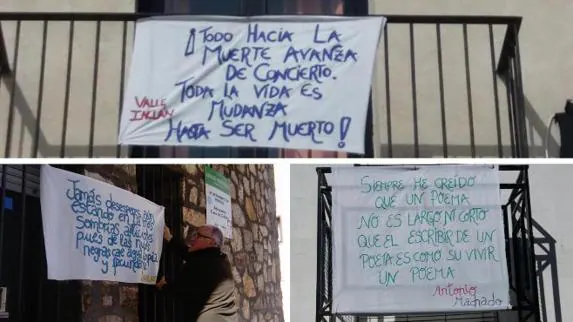 ¡TODO HACIA LA
MUERTE AVANZA
DE CONCIERTO.
TODA LA VIDA ES
MUDANZA
HASTA SER MUERTO!
VALLE
INCLÁN
Jamás desesperes aún
estando en las más
sombrías aflicciones
pues de las nubes
negras cae agua limpia
y fecunda
SIEMPRE HE CREÍDO
QUE UN POEMA
NO ES LARGO NI CORTO
QUE EL ESCRIBIR DE UN
POETA ES COMO SU VIVIR
UN POEMA
Antonio
Machado